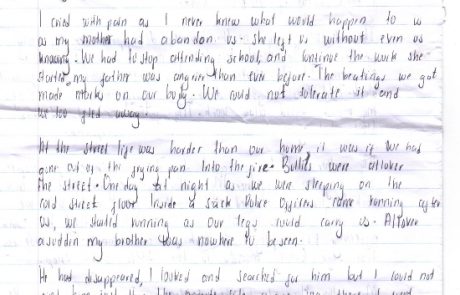 I cried with pain as I never knew what would happen to us
as my mother had abandon us. she left us without even us
knowing. We had to stop attending school, and continue the work she
started, my father was angrier than ever before. The beatings we got
made marks on our body. We could not tolerate it and
we too fled away.
At the street life was harder than our home, it was if we had
gone out of the frying pan Into the fire. Bullies were allover
the street. One day at night as we were sleeping on the
cold street floor Inside a sack Police Officers came running after
us, we started running as our legs could carry us. Allover
asuddin my brother was nowhere to be seen.
He had disappeared, I looked and searched for him but I could not